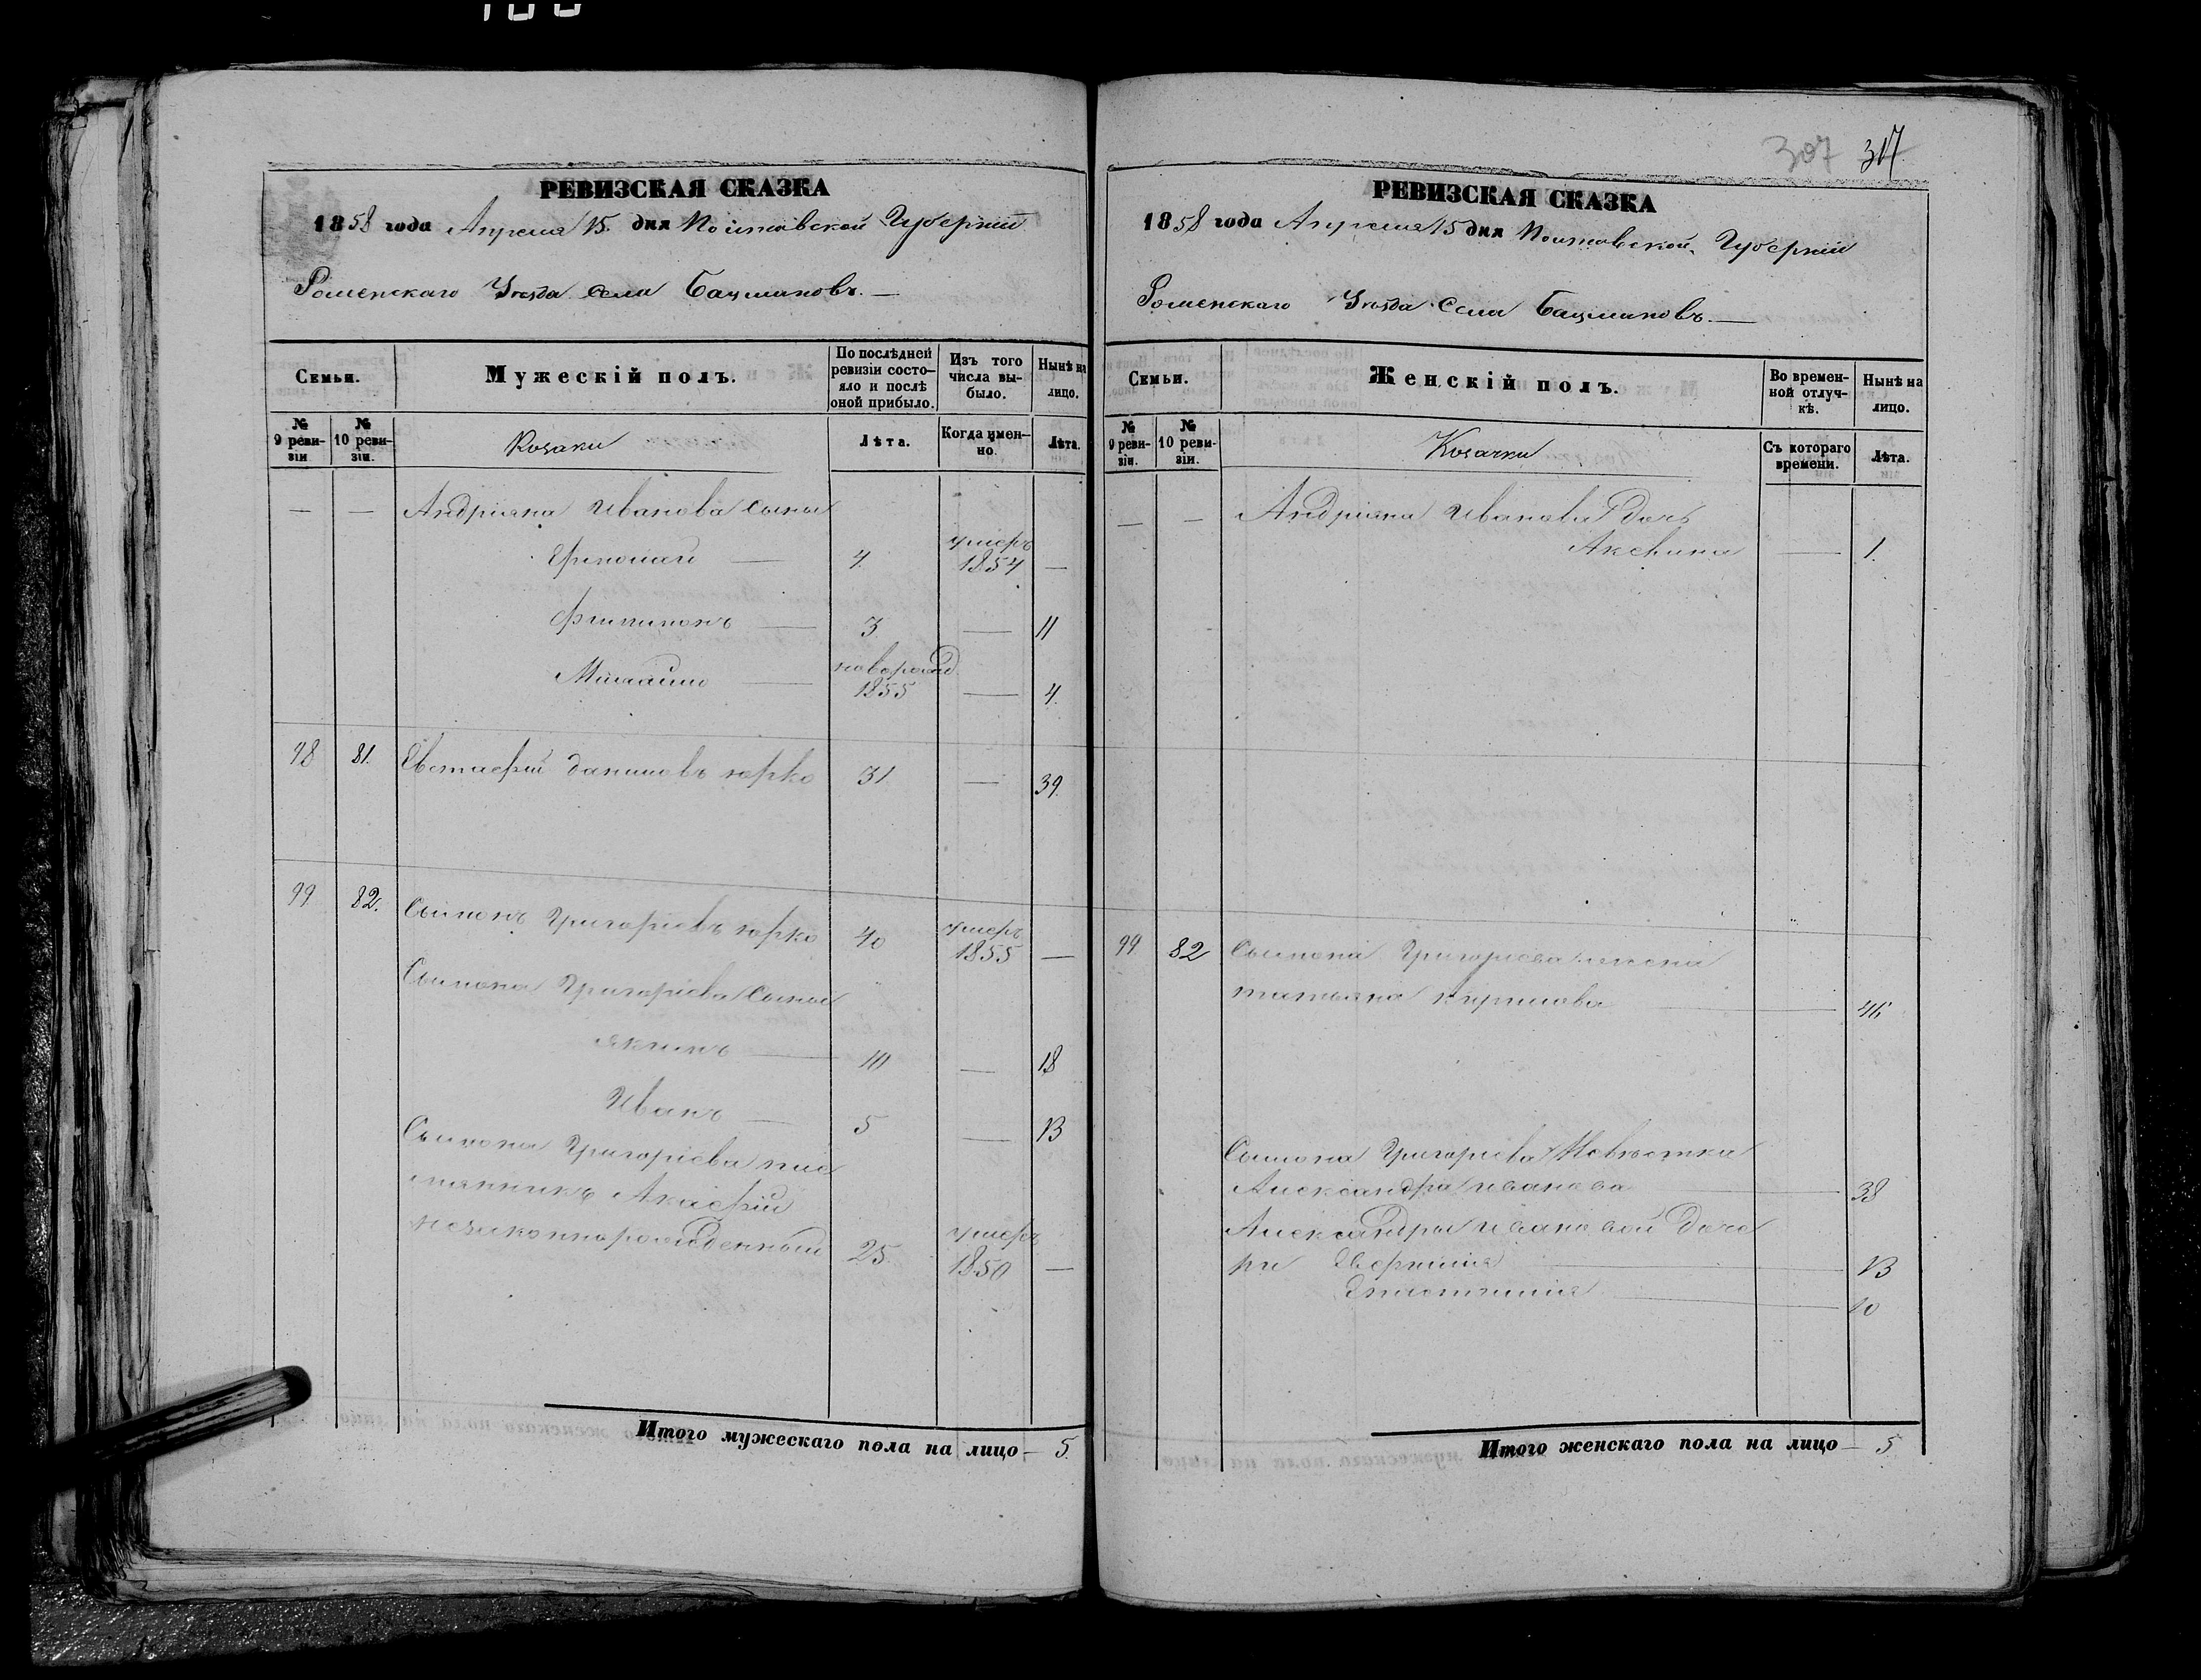 307 317
РЕВИЗСКАЯ СКАЗКА
1858 года Апреля 15. дня Полтавской Губерніи
Роменскаго Уезда Села Бацмановъ.—
Семьи.
Мужескій полъ.
По послѣдней ревизіи состояло и послѣ оной прибыло.
Изъ того числа выбыло.
Нынѣ на лицо.
№ 9 ревизіи
№ 10 ревизіи.
Козаки
Лѣта.
Когда именно.
Лѣта.
— — Андріяна Иванова сыны
Ермолай — 4 умеръ 1854 —
Филимонъ — 3 — 11
Михайло — новорожд. 1855 — 4.
98 81. Евстафій Даниловъ Юрко 31 — 39.
99 82. Самионъ Григоріевъ Юрко 40 умеръ 1855 —
Григоріева Сыны
Якимъ — 10 — 18
Иванъ — 5 — 13
Григоріева пле
мянникъ Акафій
незаконнорожденный 25. умеръ 1850 —
Итого мужескаго пола на лицо — 5.
РЕВИЗСКАЯ СКАЗКА
1858 года Апреля 15 дня Полтавской Губерніи
Роменскаго Уезда Села Бацмановъ.—
Семьи.
Женскій полъ.
Во временной отлучкѣ.
Нынѣ на лицо.
№ 9 ревизіи.
№ 10 ревизіи.
Козачки
Съ котораго времени.
Лѣта.
— — Андріяна Иванова дочь
Аксенія — 1.
99. 82 Григоріева жена
татьяна кирилова — 46
Григоріева Невѣстка
Александра иванова — 38
Александры ивановой доче
ри — 13
— 10
Итого женскаго пола на лицо — 5